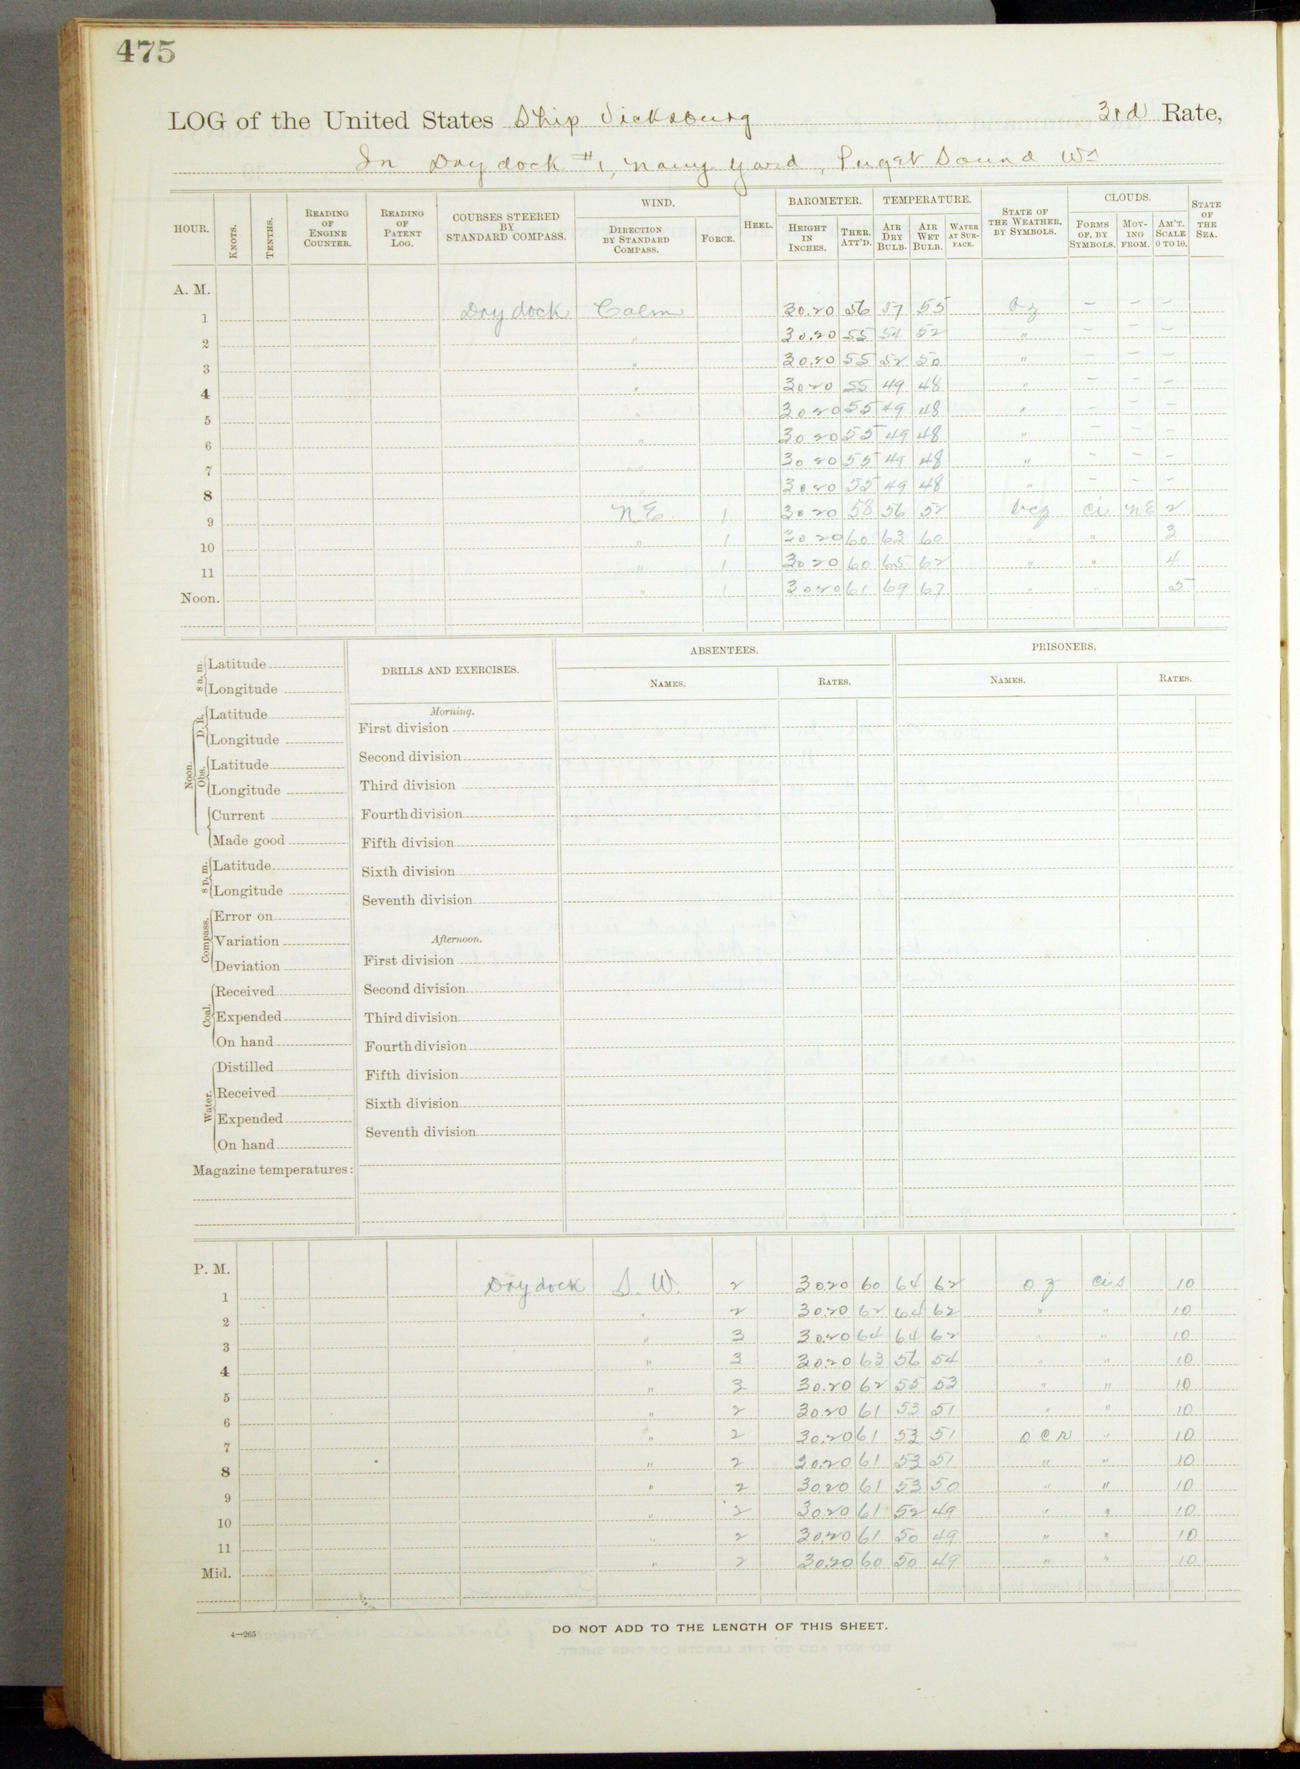 475
LOG of the United States Ship Vicksburg 3rd Rate,
In Dry dock #1, Navy Yard, Puget Sound Wn
HOUR. KNOTS. TENTHS. READING OF ENGINE COUNTER. READING OF PATENT LOG. COURSES STEERED BY STANDARD COMPASS. WIND. DIRECTION BY STANDARD COMPASS. FORCE. HEEL. BAROMETER. HEIGHT IN INCHES. THER. ATT'D. TEMPERATURE. AIR DRY BULB. AIR WET BULB. WATER AT SURFACE. STATE OF THE WEATHER, BY SYMBOLS. CLOUDS. FORMS OF, BY SYMBOLS. MOVING FROM. AM'T. SCALE 0 TO 10. STATE OF THE SEA.
A. M.
1 Dry dock Calm 30.20 56 57 55 oz — — —
2 " 30.20 55 54 52 " — — —
3 " 30.20 55 52 50 " — — —
4 " 3020 55 49 48 " — — —
5 " 3020 55 49 48 " — — —
6 " 3020 55 49 48 " — — —
7 " 3020 55 49 48 " — — —
8 " 3020 55 49 48 " — — —
9 NE 1 3020 58 56 52 bcz ci NE 2
10 " 1 3020 60 63 60 " " 3
11 " 1 3020 60 65 62 " " 4
Noon. " 1 3020 61 69 67 " " 5
8 a. m. Latitude
Longitude
Noon. D. R. Latitude
Longitude
Obs. Latitude
Longitude
Current
Made good
8 p. m. Latitude
Longitude
Compass. Error on
Variation
Deviation
Coal. Received
Expended
On hand
Water. Distilled
Received
Expended
On hand
Magazine temperatures:
DRILLS AND EXERCISES.
Morning.
First division
Second division
Third division
Fourth division
Fifth division
Sixth division
Seventh division
Afternoon.
First division
Second division
Third division
Fourth division
Fifth division
Sixth division
Seventh division
ABSENTEES.
NAMES. RATES.
PRISONERS.
NAMES. RATES.
P. M.
1 Dry dock S. W. 2 3020 60 64 62 oz ci s 10
2 " 2 30.20 62 64 62 " " 10
3 " 3 30.20 64 64 62 " " 10
4 " 3 3020 63 56 54 " " 10
5 " 3 30.20 62 55 53 " " 10
6 " 2 3020 61 53 51 " " 10
7 " 2 30.20 61 53 51 o c r " 10
8 " 2 30.20 61 53 51 " " 10
9 " 2 3020 61 53 50 " " 10
10 " 2 3020 61 52 49 " " 10
11 " 2 30.20 61 50 49 " " 10
Mid. " 2 30.20 60 50 49 " " 10
4—265
DO NOT ADD TO THE LENGTH OF THIS SHEET.